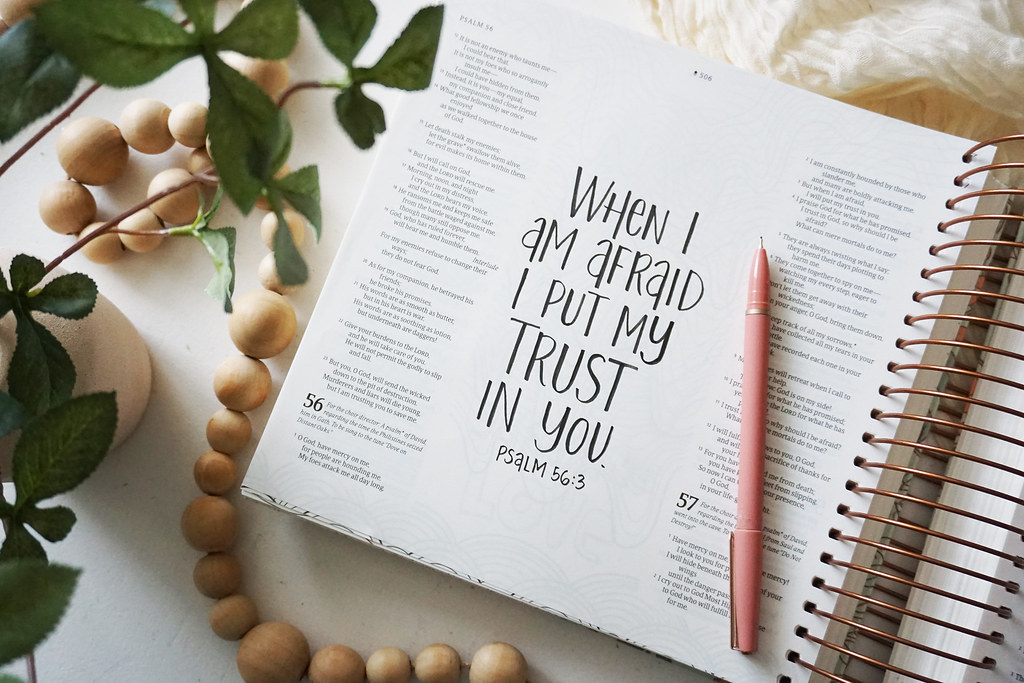 PSALM 56
506
¹² It is not an enemy who taunts me—
I could bear that.
It is not my foes who so arrogantly
insult me—
I could have hidden from them.
¹³ Instead, it is you—my equal,
my companion and close friend.
¹⁴ What good fellowship we once
enjoyed
as we walked together to the house
of God.
¹⁵ Let death stalk my enemies;
let the grave* swallow them alive,
for evil makes its home within them.
¹⁶ But I will call on God,
and the LORD will rescue me.
¹⁷ Morning, noon, and night
I cry out in my distress,
and the LORD hears my voice.
¹⁸ He ransoms me and keeps me safe
from the battle waged against me,
though many still oppose me.
¹⁹ God, who has ruled forever,
will hear me and humble them.
Interlude
For my enemies refuse to change their
ways;
they do not fear God.
²⁰ As for my companion, he betrayed his
friends;
he broke his promises.
²¹ His words are as smooth as butter,
but in his heart is war.
His words are as soothing as lotion,
but underneath are daggers!
²² Give your burdens to the LORD,
and he will take care of you.
He will not permit the godly to slip
and fall.
²³ But you, O God, will send the wicked
down to the pit of destruction.
Murderers and liars will die young,
but I am trusting you to save me.
56 For the choir director: A psalm* of David,
regarding the time the Philistines seized
him in Gath. To be sung to the tune "Dove on
Distant Oaks."
¹ O God, have mercy on me,
for people are hounding me.
My foes attack me all day long.
WHEN I
AM AFRAID
I PUT MY
TRUST
IN YOU.
PSALM 56:3
² I am constantly hounded by those who
slander me,
and many are boldly attacking me.
³ But when I am afraid,
I will put my trust in you.
⁴ I praise God for what he has promised.
I trust in God, so why should I be
afraid?
What can mere mortals do to me?
⁵ They are always twisting what I say;
they spend their days plotting to
harm me.
⁶ They come together to spy on me—
watching my every step, eager to
wickedness;
let them get away with their
your anger, O God, bring them down.
keep track of all my sorrows.*
have collected all my tears in your
have recorded each one in your
will retreat when I call to
help.
God is on my side!
for what he has promised;
the LORD for what he has
why should I be afraid?
mortals do to me?
vows to you, O God,
sacrifice of thanks for
me from death;
feet from slipping.
So now I can
O God,
in your life-
57 For the choir
psalm* of David,
regarding the
from Saul and
went into the cave. To
tune "Do Not
Destroy!"
¹ Have mercy on me,
mercy!
I look to you for p
I will hide beneath th
of your
wings
until the danger pass
² I cry out to God Most Hi
to God who will fulfill
for me.